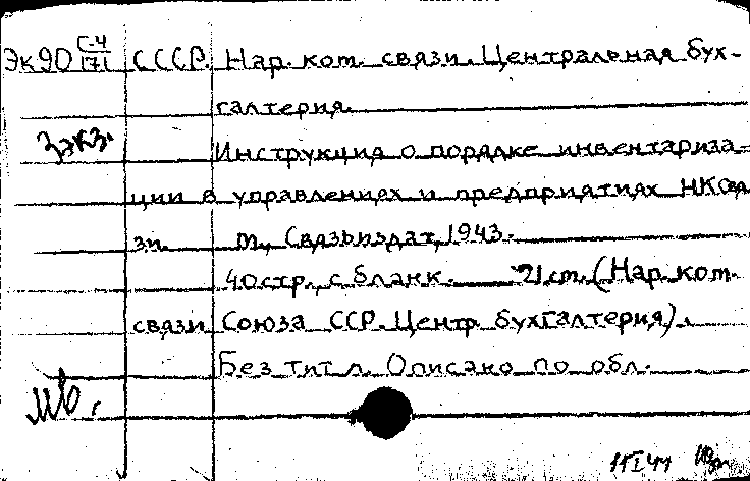 Эк90 С-4/171 СССР. Нар. ком. связи. Центральная бух-
галтерия.
3 экз. Инструкция о порядке инвентариза
ции в управлениях и предприятиях НКСвя
зи. М., Связьиздат, 1943.
40 стр. с бланк. 21 см. (Нар. ком.
связи Союза ССР. Центр. бухгалтерия).
Без тит. л. Описано по обл.